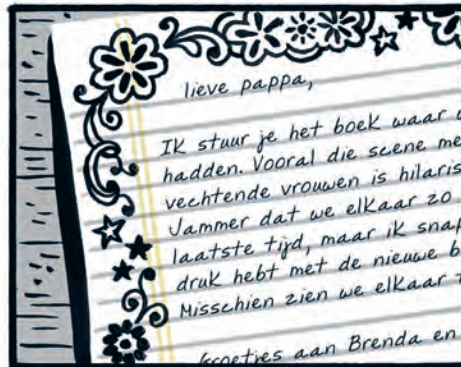 lieve pappa,
IK stuur je het boek waar
hadden. Vooral die scene me
vechtende vrouwen is hilaris
Jammer dat we elkaar zo
laatste tijd, maar ik snap
druk hebt met de nieuwe b
Misschien zien we elkaar
Groetjes aan Brenda en